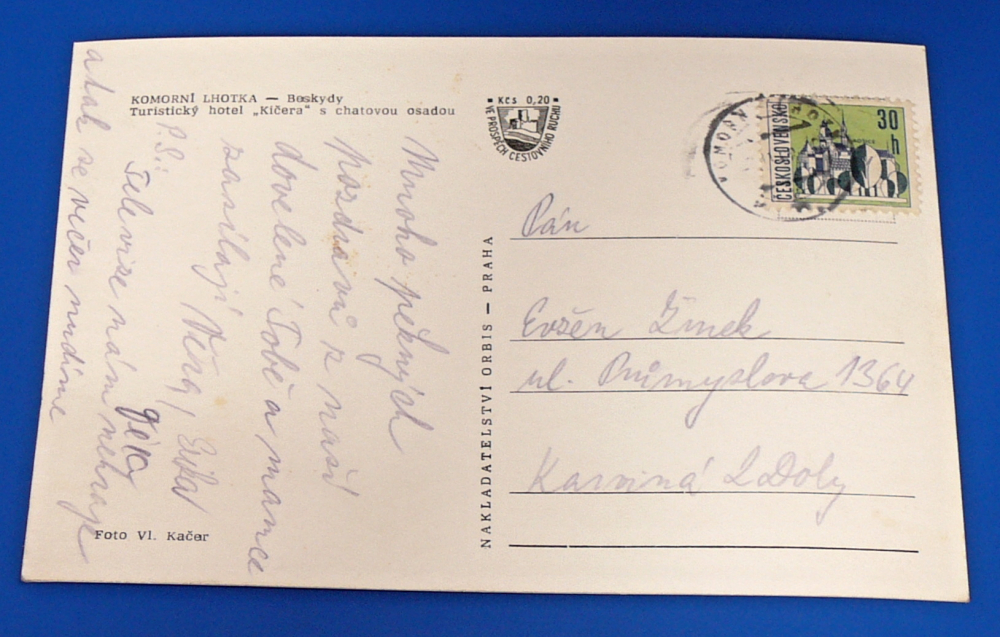 KOMORNÍ LHOTKA — Beskydy
Turistický hotel „Kičera" s chatovou osadou
Mnoho pěkných
pozdravů z naší
dovolené Tobě a mamce
zasílají Věra,
P.S.:
Televize nám nehraje
a tak se večer nudíme
Věra
Foto Vl. Kačer
NAKLADATELSTVÍ ORBIS — PRAHA
Kčs 0,20
VE PROSPĚCH CESTOVNÍHO RUCHU
ČESKOSLOVENSKO
30
h
Pán
Evžen
ul. Průmyslová 1364
Karviná 2 Doly